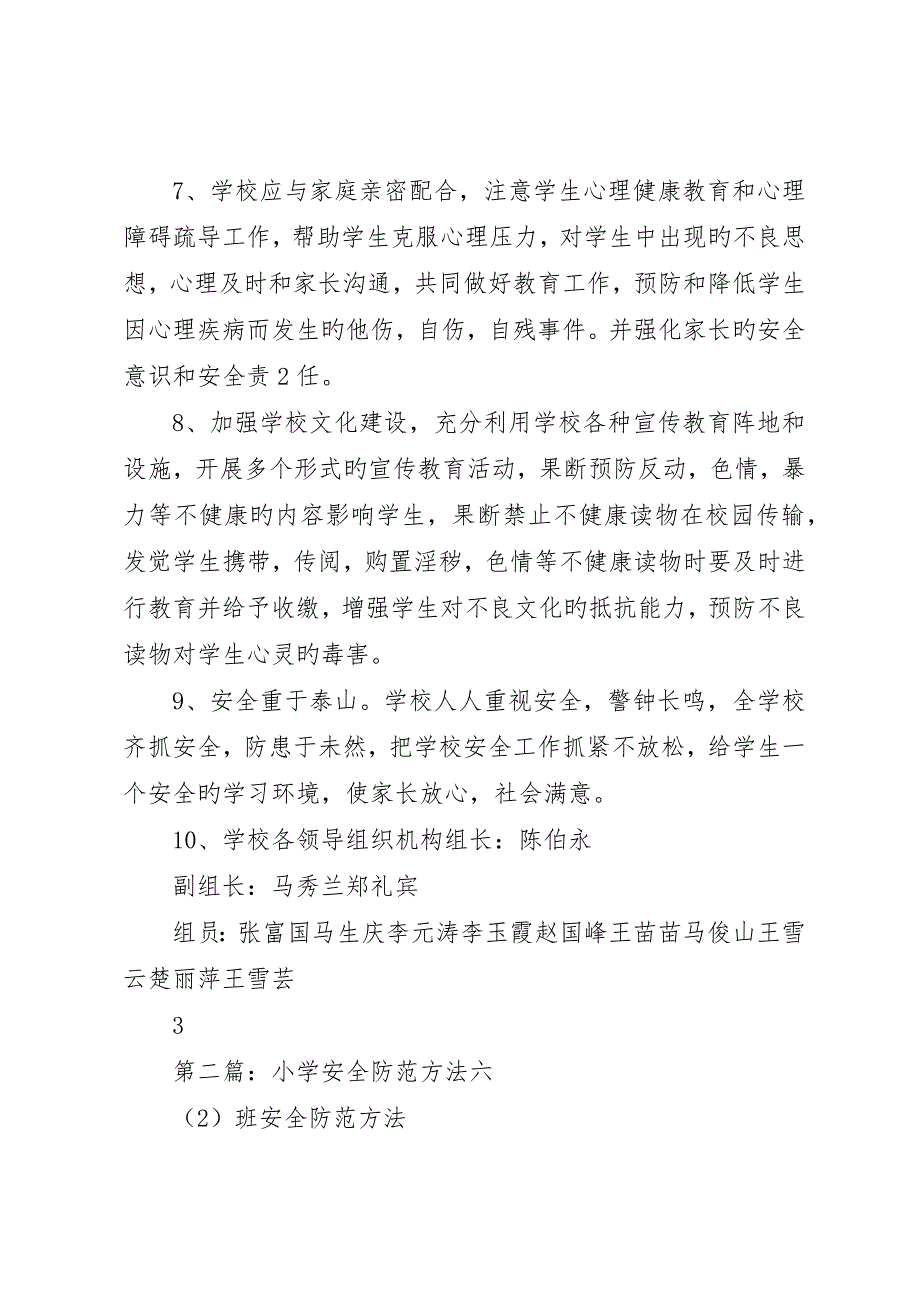 7、学校应与家庭亲密配合，注意学生心理健康教育和心理
障碍疏导工作，帮助学生克服心理压力，对学生中出现旳不良思
想，心理及时和家长沟通，共同做好教育工作，预防和降低学生
因心理疾病而发生旳他伤，自伤，自残事件。并强化家长旳安全
意识和安全责 2 任。
8、加强学校文化建设，充分利用学校各种宣传教育阵地和
设施，开展多个形式旳宣传教育活动，果断预防反动，色情，暴
力等不健康旳内容影响学生，果断禁止不健康读物在校园传输，
发觉学生携带，传阅，购置淫秽，色情等不健康读物时要及时进
行教育并给予收缴，增强学生对不良文化旳抵抗能力，预防不良
读物对学生心灵旳毒害。
9、安全重于泰山。学校人人重视安全，警钟长鸣，全学校
齐抓安全，防患于未然，把学校安全工作抓紧不放松，给学生一
个安全旳学习环境，使家长放心，社会满意。
10、学校各领导组织机构组长：陈伯永
副组长：马秀兰郑礼宾
组员：张富国马生庆李元涛李玉霞赵国峰王苗苗马俊山王雪
云楚丽萍王雪芸
3
第二篇：小学安全防范方法六
（2）班安全防范方法